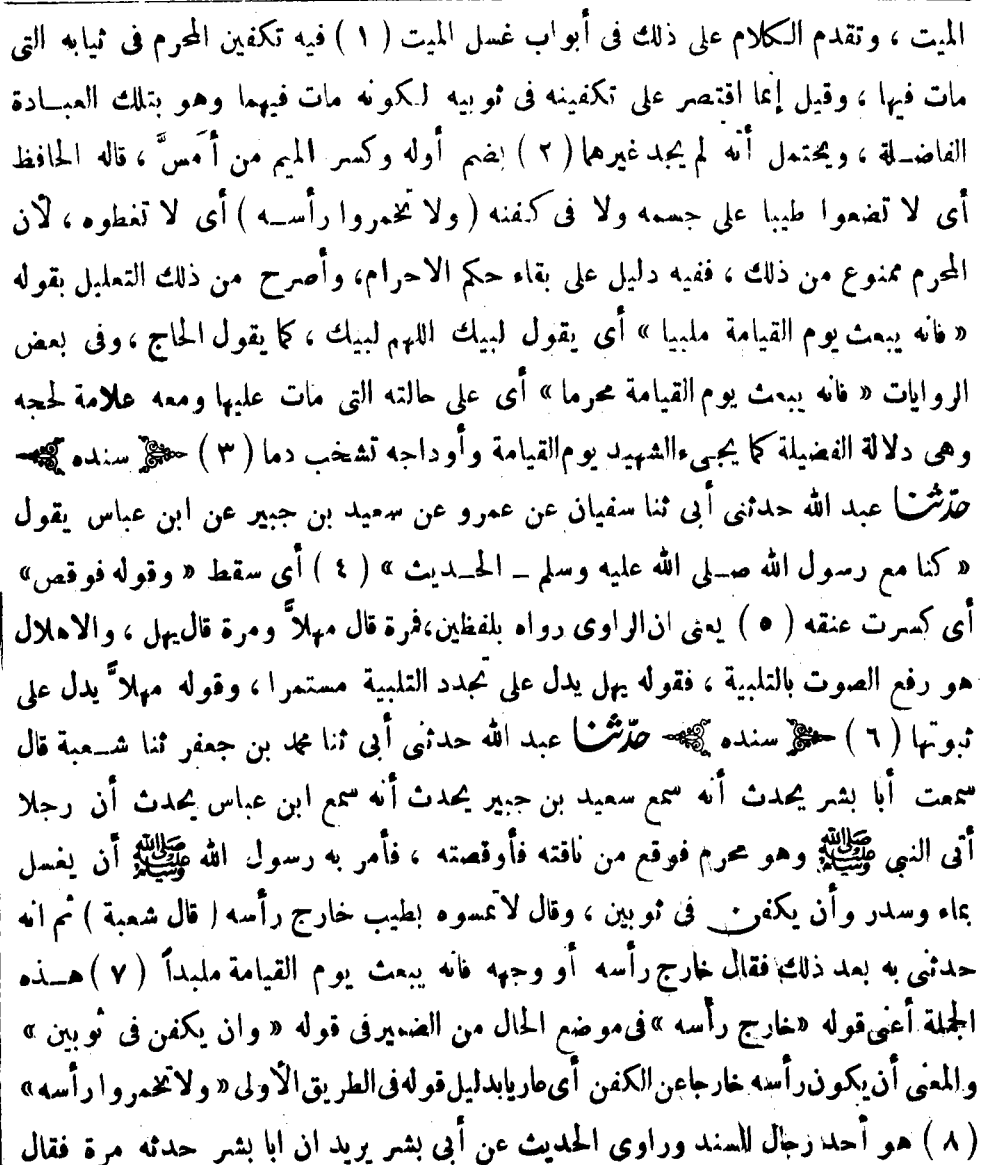 الميت ، وتقدم الكلام على ذلك فى أبواب غسل الميت ( ١ ) فيه تكفين المحرم فى ثيابه التى
مات فيها ، وقيل إنما اقتصر على تكفينه فى ثوبيه لكونه مات فيهما وهو بتلك العبادة
الفاضلة ، ويحتمل أنه لم يجد غيرهما ( ٢ ) بضم أوله وكسر الميم من أمسَّ ، قاله الحافظ
أى لا تضعوا طيبا على جسمه ولا فى كفنه ( ولا تخمروا رأسه ) أى لا تغطوه ، لأن
المحرم ممنوع من ذلك ، ففيه دليل على بقاء حكم الاحرام، وأصرح من ذلك التعليل بقوله
« فانه يبعث يوم القيامة ملبيا » أى يقول لبيك اللهم لبيك ، كما يقول الحاج ، وفى بعض
الروايات « فانه يبعث يوم القيامة محرما » أى على حالته التى مات عليها ومعه علامة لحجه
وهى دلالة الفضيلة كما يجىء الشهيد يوم القيامة وأوداجه تشخب دما ( ٣ ) سنده
حدّثنا عبد الله حدثنى أبى ثنا سفيان عن عمرو عن سعيد بن جبير عن ابن عباس يقول
« كنا مع رسول الله صلى الله عليه وسلم ـ الحديث » ( ٤ ) أى سقط « وقوله فوقص»
أى كسرت عنقه ( ٥ ) يعنى ان الراوى رواه بلفظين،فمرة قال مهلاًّ ومرة قال يهل ، والاهلال
هو رفع الصوت بالتلبية ، فقوله يهل يدل على تجدد التلبية مستمرا ، وقوله مهلاًّ يدل على
ثبوتها ( ٦ ) سنده حدّثنا عبد الله حدثنى أبى ثنا محمد بن جعفر ثنا شعبة قال
سمعت أبا بشر يحدث أنه سمع سعيد بن جبير يحدث أنه سمع ابن عباس يحدث أن رجلا
أتى النبى ﷺ وهو محرم فوقع من ناقته فأوقصته ، فأمر به رسول الله ﷺ أن يغسل
بماء وسدر وأن يكفن فى ثوبين ، وقال لاتمسوه بطيب خارج رأسه ( قال شعبة ) ثم انه
حدثنى به بعد ذلك فقال خارج رأسه أو وجهه فانه يبعث يوم القيامة ملبداً ( ٧ ) هذه
الجملة أعنى قوله «خارج رأسه »فى موضع الحال من الضمير فى قوله « وان يكفن فى ثوبين »
والمعنى أن يكون رأسه خارجا عن الكفن أى عاريا بدليل قوله فى الطريق الأولى « ولاتخمروا رأسه»
( ٨ ) هو أحد رجال السند وراوى الحديث عن أبى بشر يريد ان ابا بشر حدثه مرة فقال